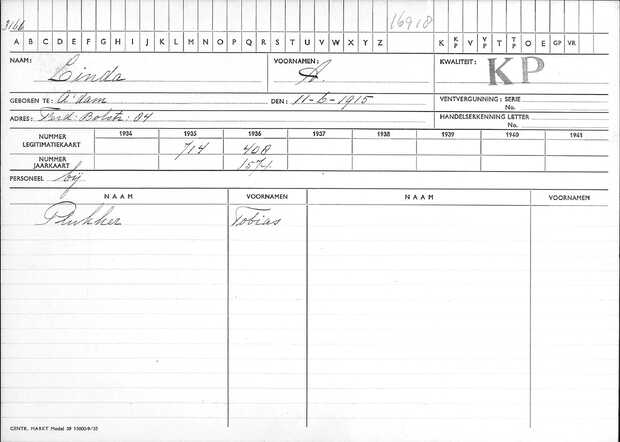 3166
16918
A B C D E F G H I J K L M N O P Q R S T U V W X Y Z K K/P V V/P T T/P O E GP VR
NAAM: Linda VOORNAMEN: A. KWALITEIT: KP
GEBOREN TE: A'dam DEN: 11-6-1915 VENTVERGUNNING: SERIE
No.
ADRES: Ferd: Bolstr: 84 HANDELSERKENNING LETTER
No.
NUMMER LEGITIMATIEKAART 1934 1935 1936 1937 1938 1939 1940 1941
714 408
NUMMER JAARKAART 1571
PERSONEEL bij
NAAM VOORNAMEN NAAM VOORNAMEN
Plukker Tobias
CENTR. MARKT Model 39 15000/9/35